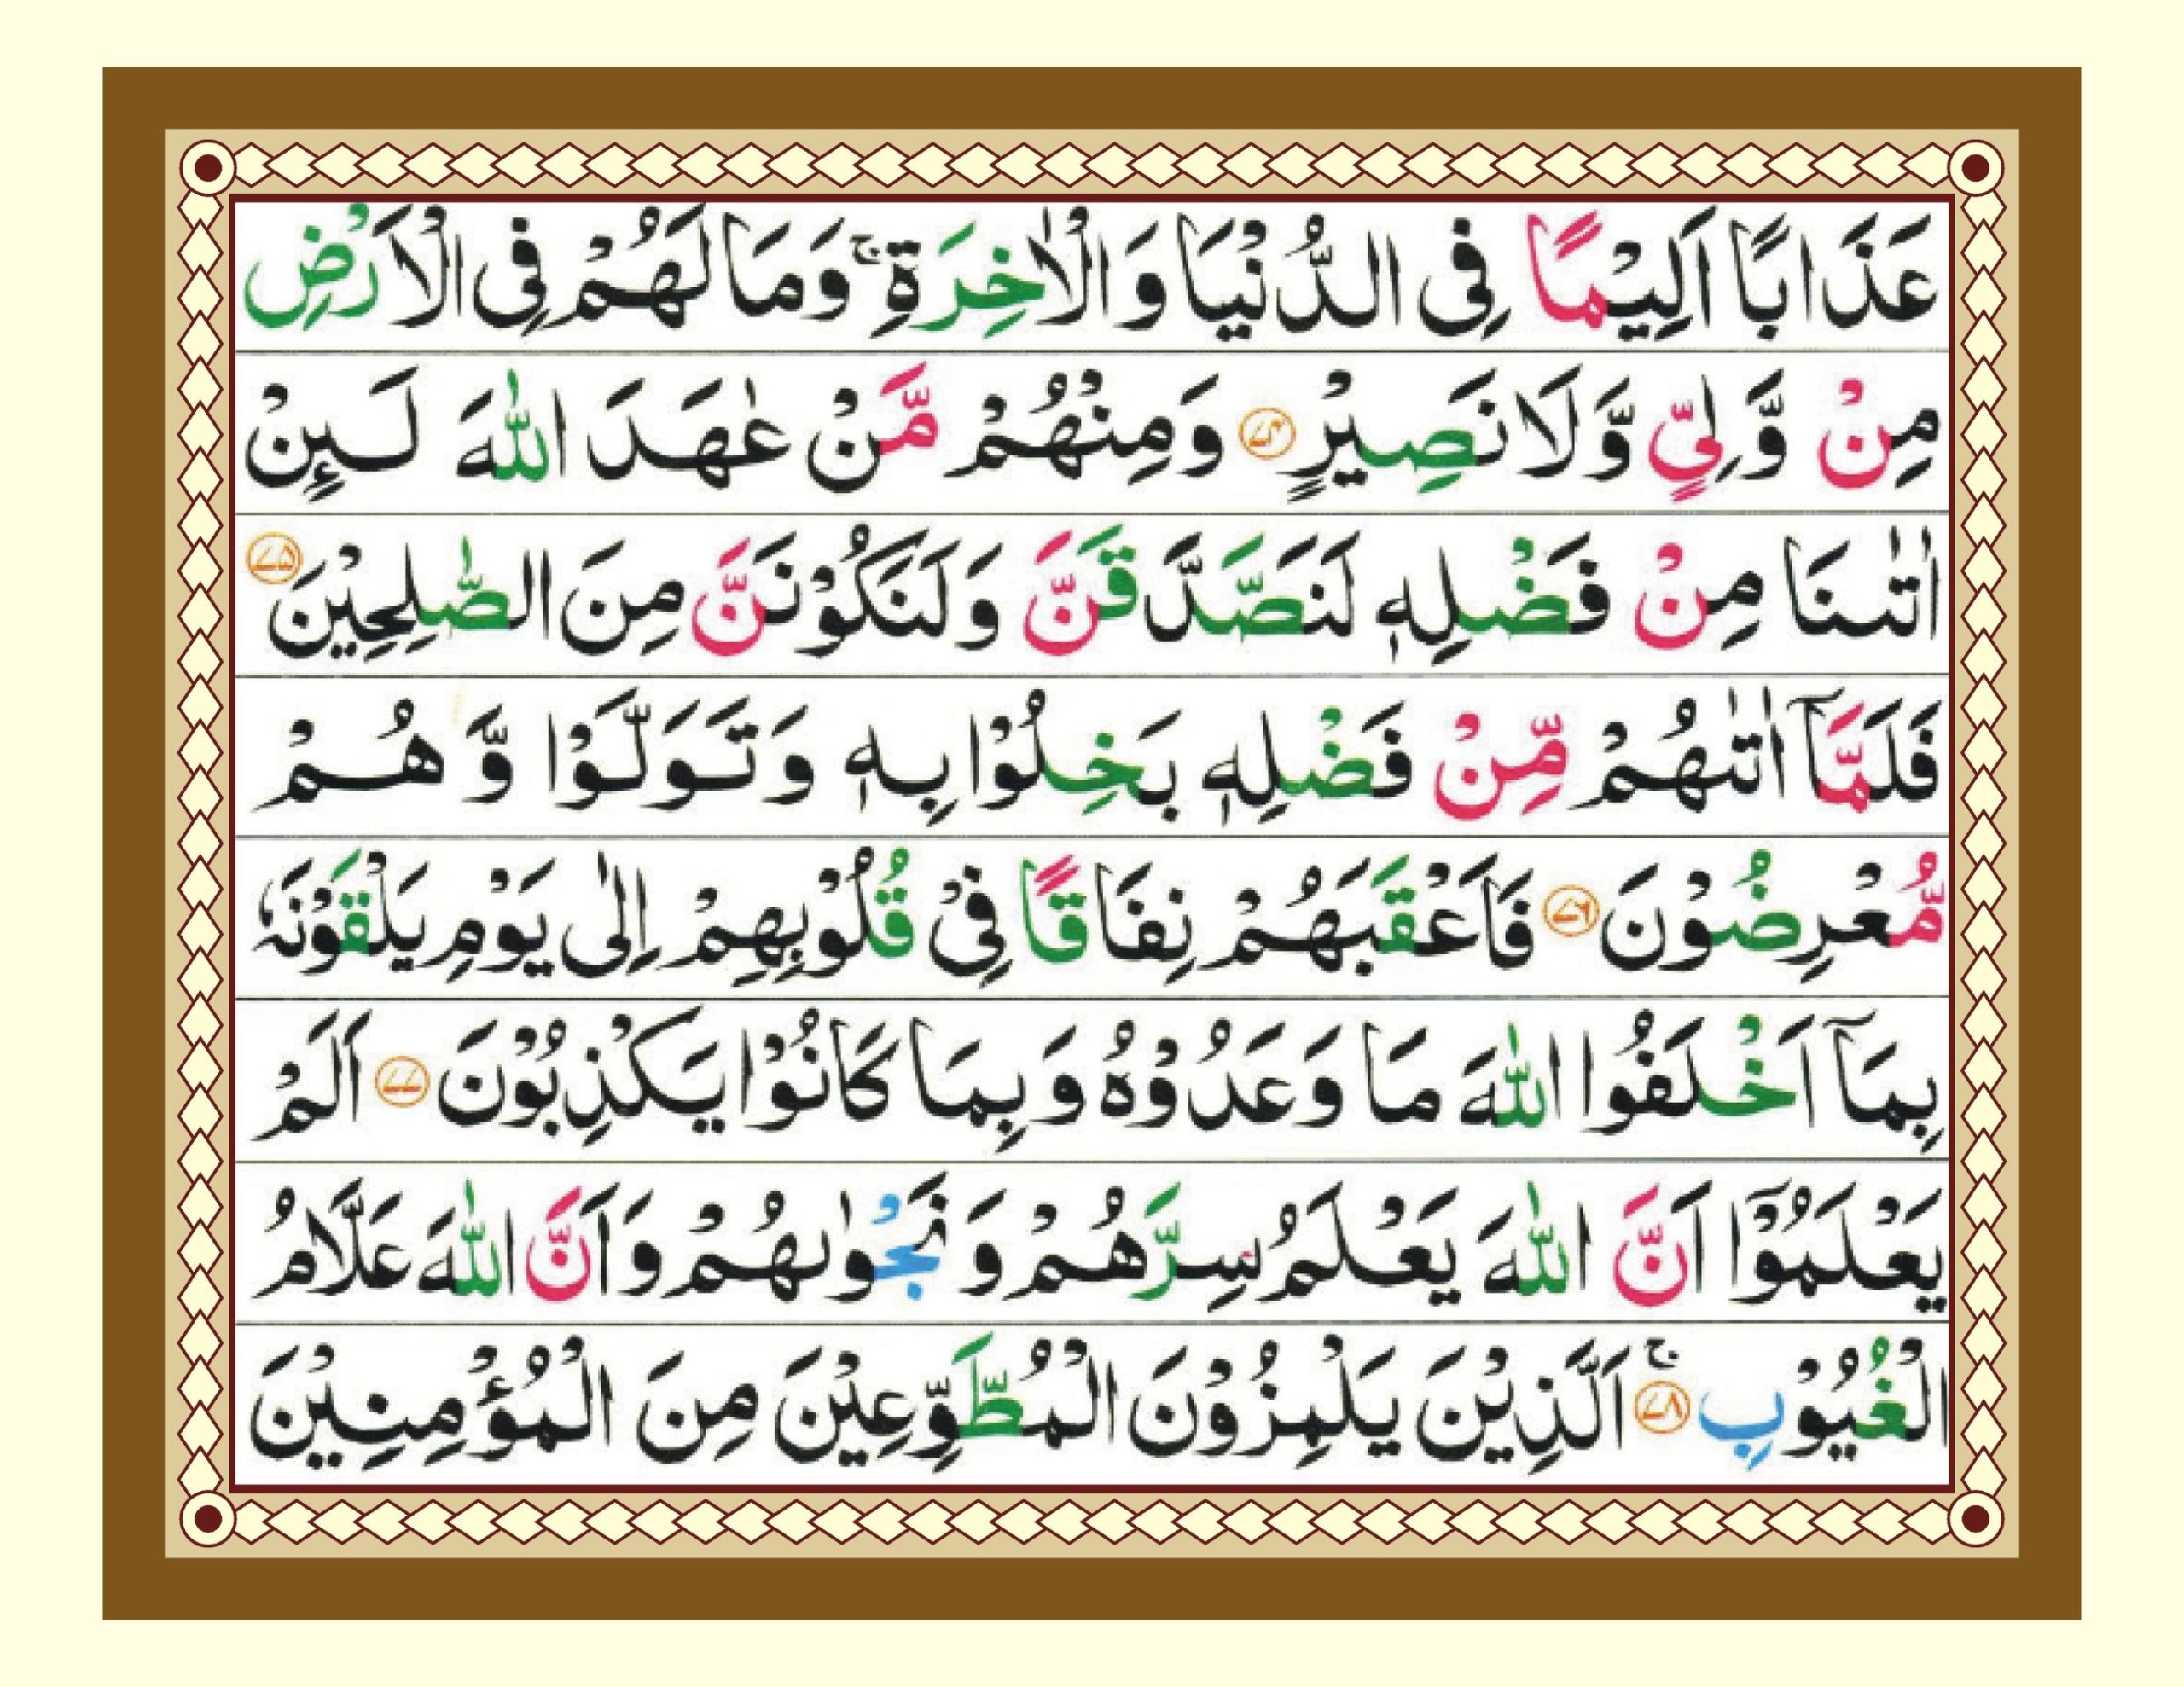 عَذَابًا اَلِيْمًا فِى الدُّنْيَا وَالْاٰخِرَةِ ۚ وَمَا لَهُمْ فِى الْاَرْضِ
مِنْ وَّلِيٍّ وَّلَا نَصِيْرٍ ۝۷۴ وَمِنْهُمْ مَّنْ عٰهَدَ اللّٰهَ لَـئِنْ
اٰتٰٮنَا مِنْ فَضْلِهٖ لَنَصَّدَّقَنَّ وَلَنَكُوْنَنَّ مِنَ الصّٰلِحِيْنَ ۝۷۵
فَلَمَّآ اٰتٰٮهُمْ مِّنْ فَضْلِهٖ بَخِلُوْا بِهٖ وَتَوَلَّوْا وَّهُمْ
مُّعْرِضُوْنَ ۝۷۶ فَاَعْقَبَهُمْ نِفَاقًا فِيْ قُلُوْبِهِمْ اِلٰى يَوْمِ يَلْقَوْنَهٗ
بِمَآ اَخْلَفُوا اللّٰهَ مَا وَعَدُوْهُ وَبِمَا كَانُوْا يَكْذِبُوْنَ ۝۷۷ اَلَمْ
يَعْلَمُوْٓا اَنَّ اللّٰهَ يَعْلَمُ سِرَّهُمْ وَنَجْوٰٮهُمْ وَاَنَّ اللّٰهَ عَلَّامُ
الْغُيُوْبِ ۝۷۸ ۚ اَلَّذِيْنَ يَلْمِزُوْنَ الْمُطَّوِّعِيْنَ مِنَ الْمُؤْمِنِيْنَ